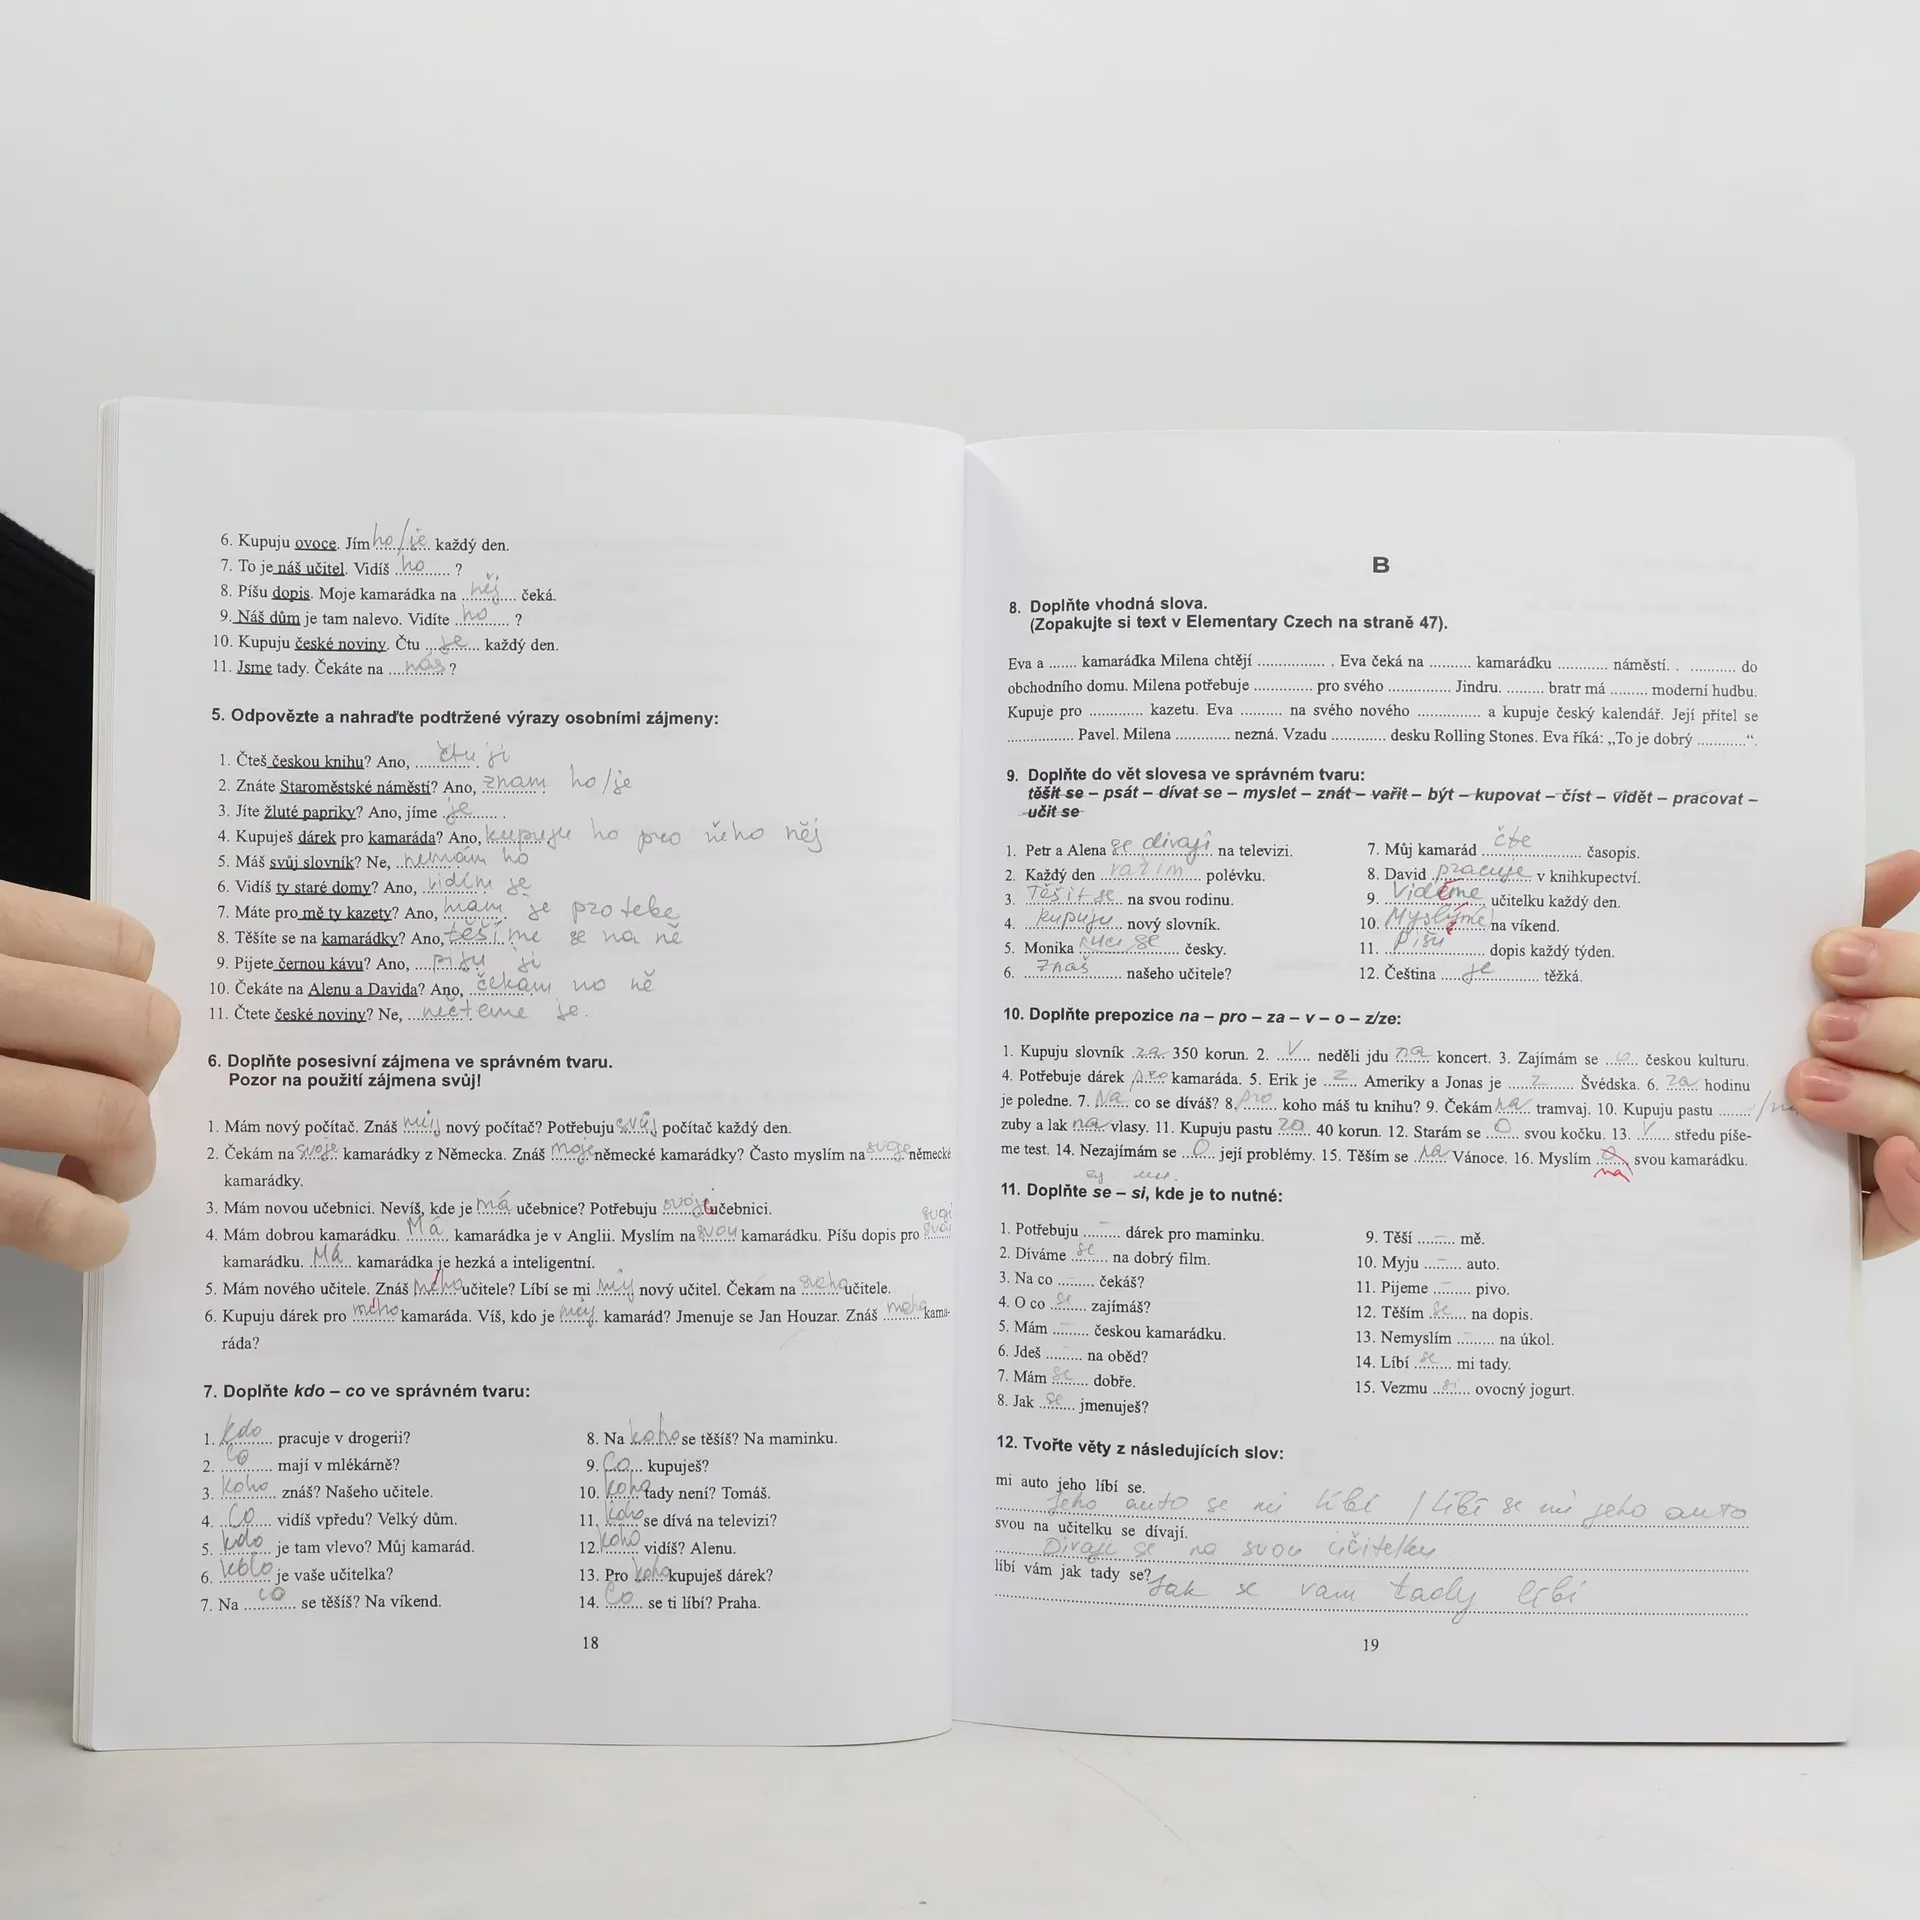 6. Kupuju ovoce. Jím ho/je každý den.
7. To je náš učitel. Vidíš ho ?
8. Píšu dopis. Moje kamarádka na něj čeká.
9. Náš dům je tam nalevo. Vidíte ho ?
10. Kupuju české noviny. Čtu je každý den.
11. Jsme tady. Čekáte na nás ?
5. Odpovězte a nahraďte podtržené výrazy osobními zájmeny:
1. Čteš českou knihu? Ano, čtu ji
2. Znáte Staroměstské náměstí? Ano, znam ho/je
3. Jíte žluté papriky? Ano, jíme je .
4. Kupuješ dárek pro kamaráda? Ano, kupuju ho pro něho něj
5. Máš svůj slovník? Ne, nemám ho
6. Vidíš ty staré domy? Ano, vidím je
7. Máte pro mě ty kazety? Ano, mám je pro tebe
8. Těšíte se na kamarádky? Ano, těšíme se na ně
9. Pijete černou kávu? Ano, piju ji
10. Čekáte na Alenu a Davida? Ano, čekám na ně
11. Čtete české noviny? Ne, nečteme je.
6. Doplňte posesivní zájmena ve správném tvaru.
Pozor na použití zájmena svůj!
1. Mám nový počítač. Znáš můj nový počítač? Potřebuju svůj počítač každý den.
2. Čekám na svoje kamarádky z Německa. Znáš moje německé kamarádky? Často myslím na svoje německé
kamarádky.
3. Mám novou učebnici. Nevíš, kde je má učebnice? Potřebuju svoji učebnici.
4. Mám dobrou kamarádku. Má kamarádka je v Anglii. Myslím na svou kamarádku. Píšu dopis pro
kamarádku. Má kamarádka je hezká a inteligentní.
5. Mám nového učitele. Znáš mého učitele? Líbí se mi můj nový učitel. Čekam na sveho učitele.
6. Kupuju dárek pro mého kamaráda. Víš, kdo je můj kamarád? Jmenuje se Jan Houzar. Znáš meho kama-
ráda?
7. Doplňte kdo – co ve správném tvaru:
1. kdo pracuje v drogerii?
2. co mají v mlékárně?
3. koho znáš? Našeho učitele.
4. Co vidíš vpředu? Velký dům.
5. kdo je tam vlevo? Můj kamarád.
6. kdo je vaše učitelka?
7. Na co se těšíš? Na víkend.
8. Na koho se těšíš? Na maminku.
9. Co kupuješ?
10. koho tady není? Tomáš.
11. kdo se dívá na televizi?
12. koho vidíš? Alenu.
13. Pro koho kupuješ dárek?
14. Co se ti líbí? Praha.
18
B
8. Doplňte vhodná slova.
(Zopakujte si text v Elementary Czech na straně 47).
Eva a ....... kamarádka Milena chtějí ............... . Eva čeká na .......... kamarádku ............ náměstí. . ........... do
obchodního domu. Milena potřebuje .............. pro svého ............... Jindru. ......... bratr má ......... moderní hudbu.
Kupuje pro ............. kazetu. Eva .......... na svého nového ............... a kupuje český kalendář. Její přítel se
................ Pavel. Milena ............. nezná. Vzadu ............. desku Rolling Stones. Eva říká: „To je dobrý ...........“.
9. Doplňte do vět slovesa ve správném tvaru:
těšit se – psát – dívat se – myslet – znát – vařit – být – kupovat – číst – vidět – pracovat –
učit se
1. Petr a Alena se dívají na televizi.
2. Každý den vařím polévku.
3. Těšit se na svou rodinu.
4. kupuju nový slovník.
5. Monika učí se česky.
6. znaš našeho učitele?
7. Můj kamarád čte časopis.
8. David pracuje v knihkupectví.
9. Vidíme učitelku každý den.
10. Myslíme na víkend.
11. Píšu dopis každý týden.
12. Čeština je těžká.
10. Doplňte prepozice na – pro – za – v – o – z/ze:
1. Kupuju slovník za 350 korun. 2. V neděli jdu na koncert. 3. Zajímám se o českou kulturu.
4. Potřebuje dárek pro kamaráda. 5. Erik je z Ameriky a Jonas je z Švédska. 6. za hodinu
je poledne. 7. Na co se díváš? 8. pro koho máš tu knihu? 9. Čekám na tramvaj. 10. Kupuju pastu ....... /na
zuby a lak na vlasy. 11. Kupuju pastu za 40 korun. 12. Starám se o svou kočku. 13. V středu píše-
me test. 14. Nezajímám se o její problémy. 15. Těším se na Vánoce. 16. Myslím o na svou kamarádku.
11. Doplňte se – si, kde je to nutné:
1. Potřebuju – dárek pro maminku.
2. Díváme se na dobrý film.
3. Na co – čekáš?
4. O co se zajímáš?
5. Mám – českou kamarádku.
6. Jdeš – na oběd?
7. Mám se dobře.
8. Jak se jmenuješ?
9. Těší – mě.
10. Myju – auto.
11. Pijeme – pivo.
12. Těším se na dopis.
13. Nemyslím – na úkol.
14. Líbí se mi tady.
15. Vezmu si ovocný jogurt.
12. Tvořte věty z následujících slov:
mi auto jeho líbí se.
Jeho auto se mi líbí / líbí se mi jeho auto
svou na učitelku se dívají.
Dívají se na svou učitelku
líbí vám jak tady se? Jak se vam tady líbí
19